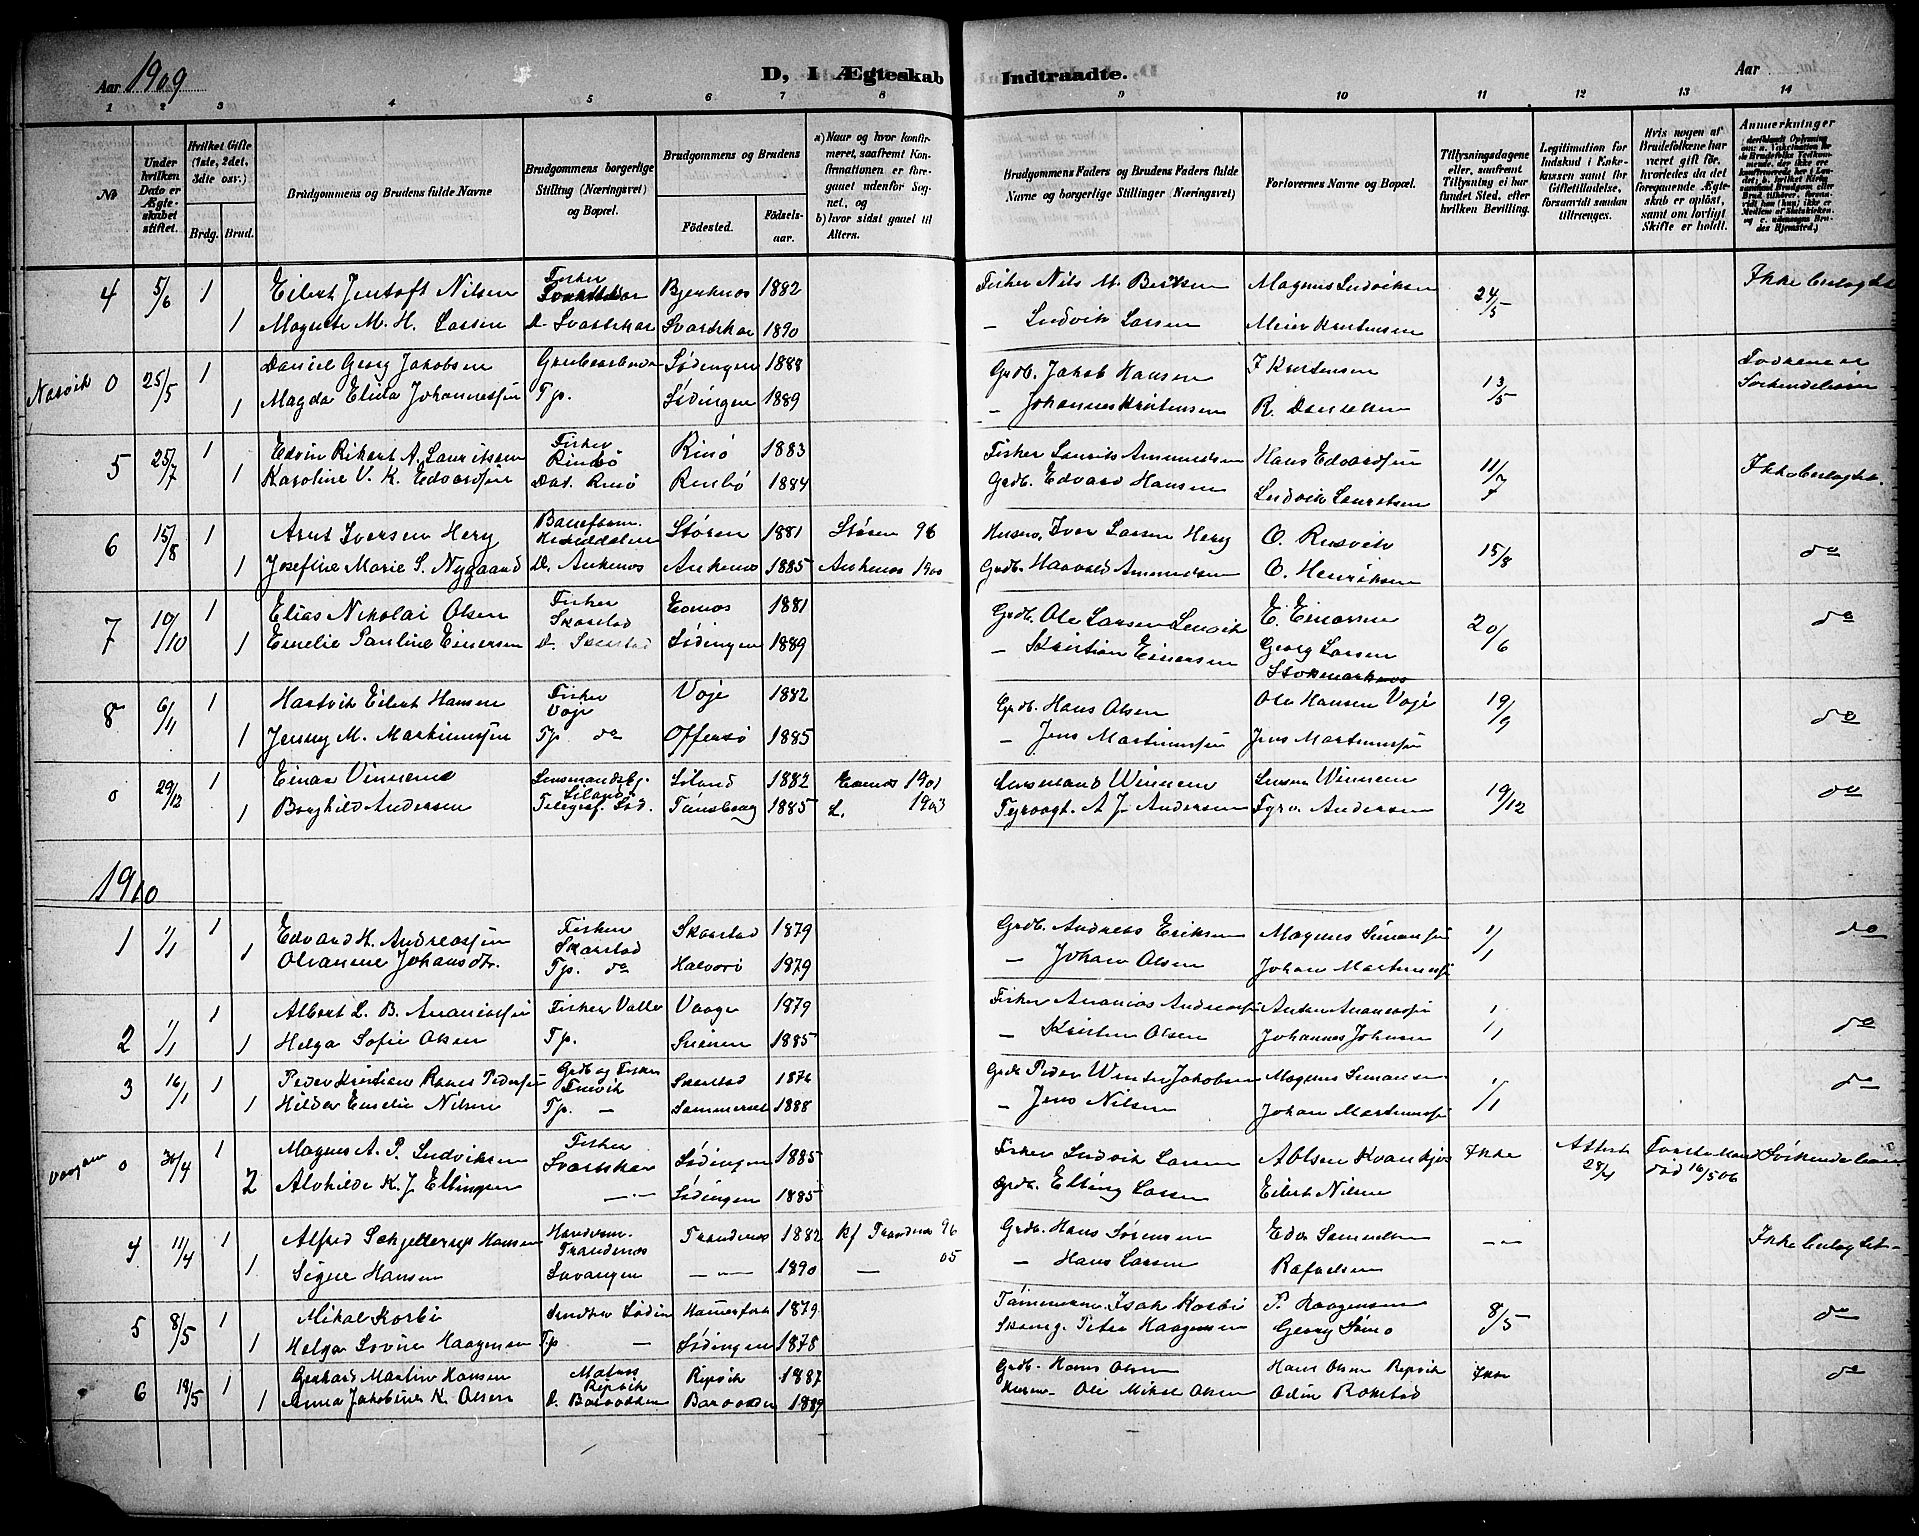 Aar 1909
D, I Ægteskab Indtraadte.
Aar
1 2 3 4 5 6 7 8 9 10 11 12 13 14
№
Under hvilken Dato er Ægteskabet stiftet.
Hvilket Gifte (1ste, 2det, 3die osv.)
Brdg. Brud.
Brudgommens og Brudens fulde Navne
Brudgommens borgerlige Stilling (Næringsvei) og Bopæl.
Brudgommens og Brudens
Fødested. Fødselsaar.
a) Naar og hvor konfirmeret, saafremt Konfirmationen er foregaaet udenfor Sognet, og
b) hvor sidst gaaet til Alters.
Brudgommens Faders og Brudens Faders fulde Navne og borgerlige Stillinger (Næringsvei)
Forlovernes Navne og Bopæl.
Tillysningsdagene eller, saafremt Tillysning ei har fundet Sted, efter hvilken Bevilling.
Legitimation for Indskud i Enkekassen samt for Giftetilladelse, forsaavidt saadan tiltrænges.
Hvis nogen af Brudefolkene har været gift før, hvorledes da det foregaaende Ægteskab er opløst, samt om lovligt Skifte er holdt.
Anmærkninger
4 5/6 1 Eilert Jentoft Nilsen Fisher Bjerknes 1882 Fisher Nils M. Magnus Ludviksen 24/5 Ikke beslagtet
1 Magnete M. H. Larsen D. Svartskar Svartskar 1890 – Ludvik Larsen Meier Kristensen
Narvik 0 25/5 1 Daniel Georg Jakobsen Grubearbeider Lødingen 1888 Grdb. Jakob Hansen J Kristensen 13/5 Fædrene er
1 Magda Elida Johannessen Tp. Lødingen 1889 – Johannes Kristensen R. Danielsen Søskendebørn
5 25/7 1 Edvin Rikart A. Lauritssen Fisher Rinbø Rinø 1883 Fisher Laurits Amundsen Hans Edvardsen 11/7 Ikke beslagtet.
1 Karoline V. K. Edvardsen Dat. Rinø Rinbø 1884 Grdb. Edvard Hansen Ludvik Lauritsen
6 15/8 1 Arnt Iversen Herg Støren 1881 Støren 96 Husm. Iver Larsen Herg O. Rusvik 15/8 do
1 Josefine Marie S. Nygaard D. Ankenes Ankenes 1885 Ankenes 1900 Grdb. Haavald Amundsen O. Henriksen
7 10/10 1 Elias Nikolai Olsen Fisher Skarstad Evenes 1881 Grdb. Ole Larsen Lenvik E. Einarsen 20/6 do
1 Emelie Pauline Einersen D. Skarstad Lødingen 1889 – Kristian Einersen Georg Larsen
Stokmarknes
8 6/11 1 Hartvik Eilert Hansen Fisher Voje Voje 1882 Grdb. Hans Olsen Ole Hansen Voje 19/9 do
1 Jenny M. Martinussen Tp do Offersø 1885 – Jens Martinussen Jens Martinussen
0 29/12 1 Einar Vinnem Lensmandsbtj. Liland Liland 1882 Evenes 1901 Lensmand Winnem Lensm Winnem 19/12 do
1 Borghild Andersen Telegraf. Lød. Tønsberg 1885 L. 1903 Fyrvogt. A J Andersen Fyrv. Andersen
1910
1 1/1 1 Edvard H. Andreassen Fisher Skarstad Skarstad 1879 Grdb. Andreas Eriksen Magnus Simonsen 1/1 do
1 Olianne Johansdtr. Tp. do Halvarø 1879 – Johan Olsen Johan Martinussen
2 1/1 1 Albert L. B. Ananiassen Fisher Valle Vaage 1879 Fisher Ananias Andreassen Anton Ananiassen 1/1 do
1 Helga Sofie Olsen Tp. 1885 – Kristen Olsen Johannes Johnsen
3 16/1 1 Peder Kristian Ranes Pedersen Grdb og Fisker Skarstad 1876 Grdb Peder Winter Jakobsen Magnus Simonsen 1/1 do
1 Hilda Emelie Nilsen Tp. – Sommerset 1888 – Jens Nilsen Johan Martinussen
Vaagan 0 30/4 1 Magnus A. P. Ludviksen Fisher Svartskar Lødingen 1885 Fisher Ludvik Larsen A Olsen Kvankjos Ikke Attest 28/4 Første Mand død 16/5 06 Søskendebørn
2 Alvhilde K. J. Ellingsen –„– Lødingen 1885 Grdb. Elling Larsen Eilert Nilsen
4 11/4 1 Alfred Schjelderup Hansen Handelsm. Trandenes Trandenes 1882 kf Trandenes 96 Grdb. Hans Sørensen Edv Samuelsen –„– Ikke beslagtet
1 Signe Hansen Lavangen –„– 1890 – 05 – Hans Larsen Rafaelsen
5 8/5 1 Mikal Korbi Lødin Hammerfest 1879 Tømmerm Isak Korbi P. Haagensen 8/5 do
1 Helga Lovise Haagensen Tp – Lødingen 1878 Skomg. Peter Haagensen Georg
6 18/5 1 Gerhard Martin Hansen Matros Ripvik Ripvik 1887 Grdb. Hans Olsen Hans Olsen Repvik Ikke do
1 Anna Jakobine K. Olsen D. 1889 Husm– Ole Mikal Olsen Odin Rokstad